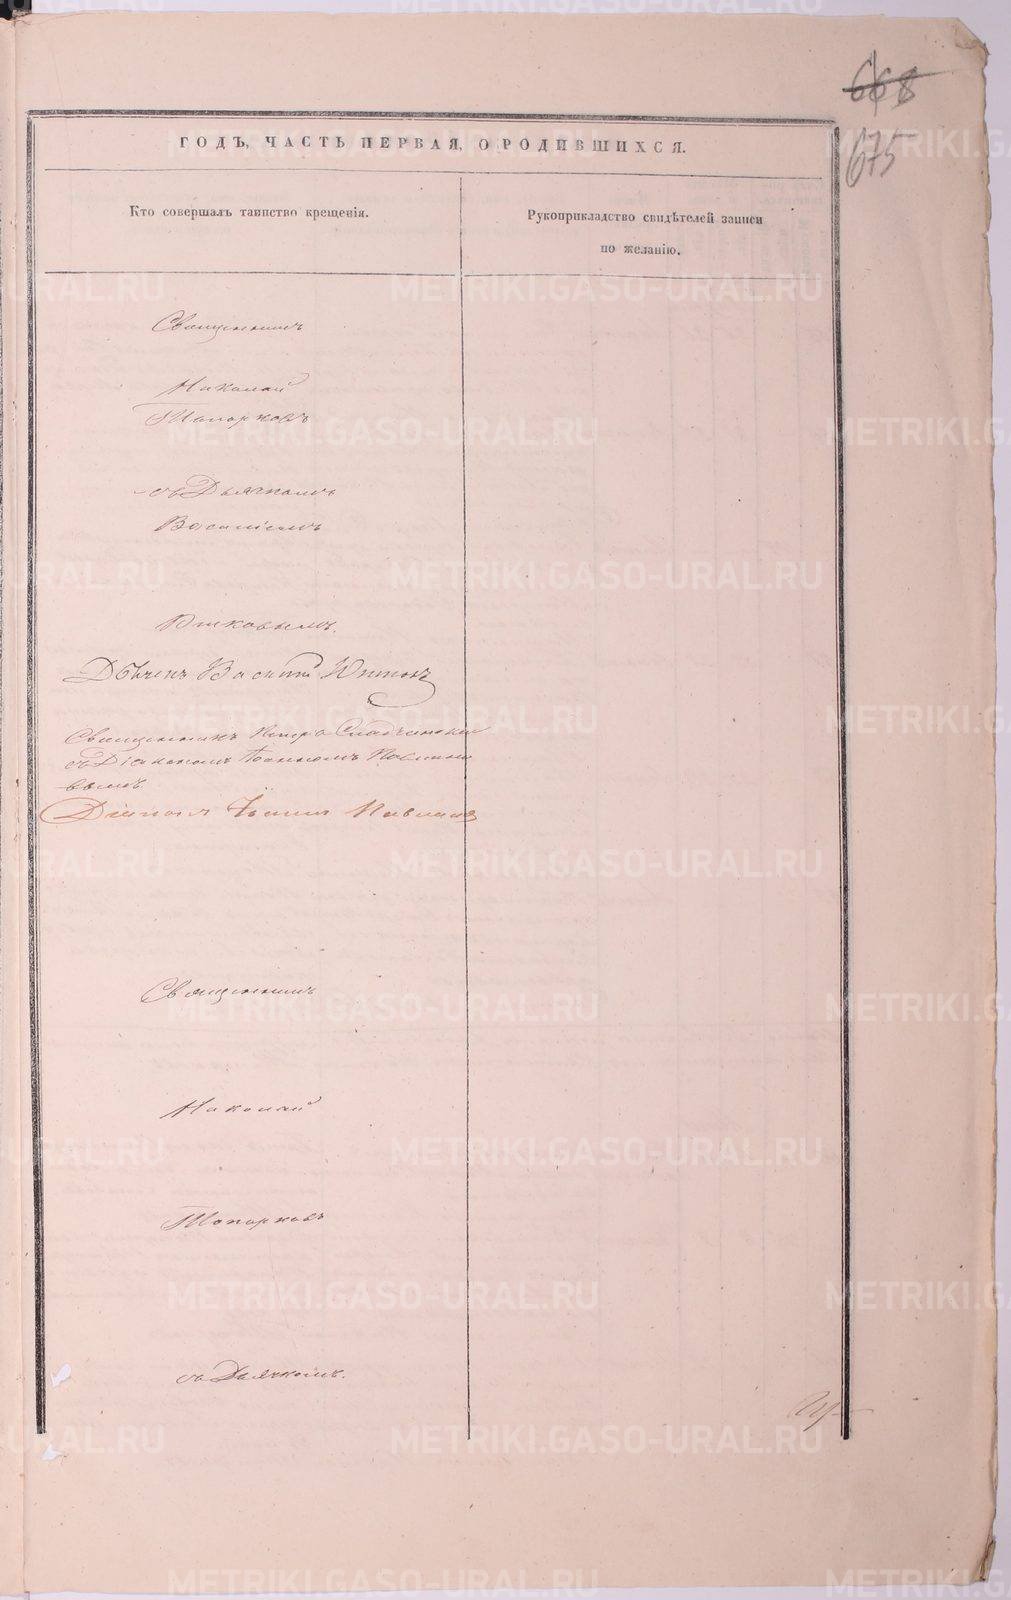 668
675
ГОДЪ, ЧАСТЬ ПЕРВАЯ, О РОДИВШИХСЯ.
Кто совершалъ таинство крещенія.
Рукоприкладство свидѣтелей записи
по желанію.
Священникъ
Николай
Топорковъ
съ Дьячкомъ
Василіемъ
Дьячекъ Василій
Священникъ Петръ
съ Діакономъ Іоанномъ
вымъ
Діаконъ Іоаннъ
Священникъ
Николай
Топорковъ
съ Дьячкомъ.
METRIKI.GASO-URAL.RU